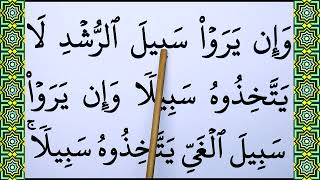 وَإِن يَرَوۡاْ سَبِيلَ ٱلرُّشۡدِ لَا
يَتَّخِذُوهُ سَبِيلٗا وَإِن يَرَوۡاْ
سَبِيلَ ٱلۡغَيِّ يَتَّخِذُوهُ سَبِيلٗاۚ